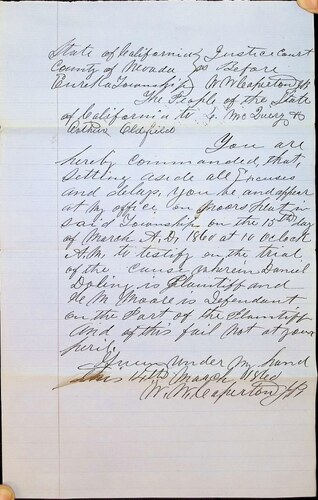 State of California } Justice Court
County of Nevada } ss Before
Eureka Township } W. W. Caperton J.P.
The People of the State
of California to G. McQuery &
Arthur Oldfield
You are
hereby commanded, that
setting aside all Excuses
and delay, You be and appear
at my office on Moors Flat in
said Township on the 15th day
of March A.D. 1860 at 10 Oclock
A.M. to testify on the trial
of the Cause wherein Daniel
Doling is Plaintiff and
H. M. Moore is Defendant
on the Part of the Plaintiff
And of this fail not at your
peril.
Given Under My hand
this 14th March 1860
W. W. Caperton J.P.